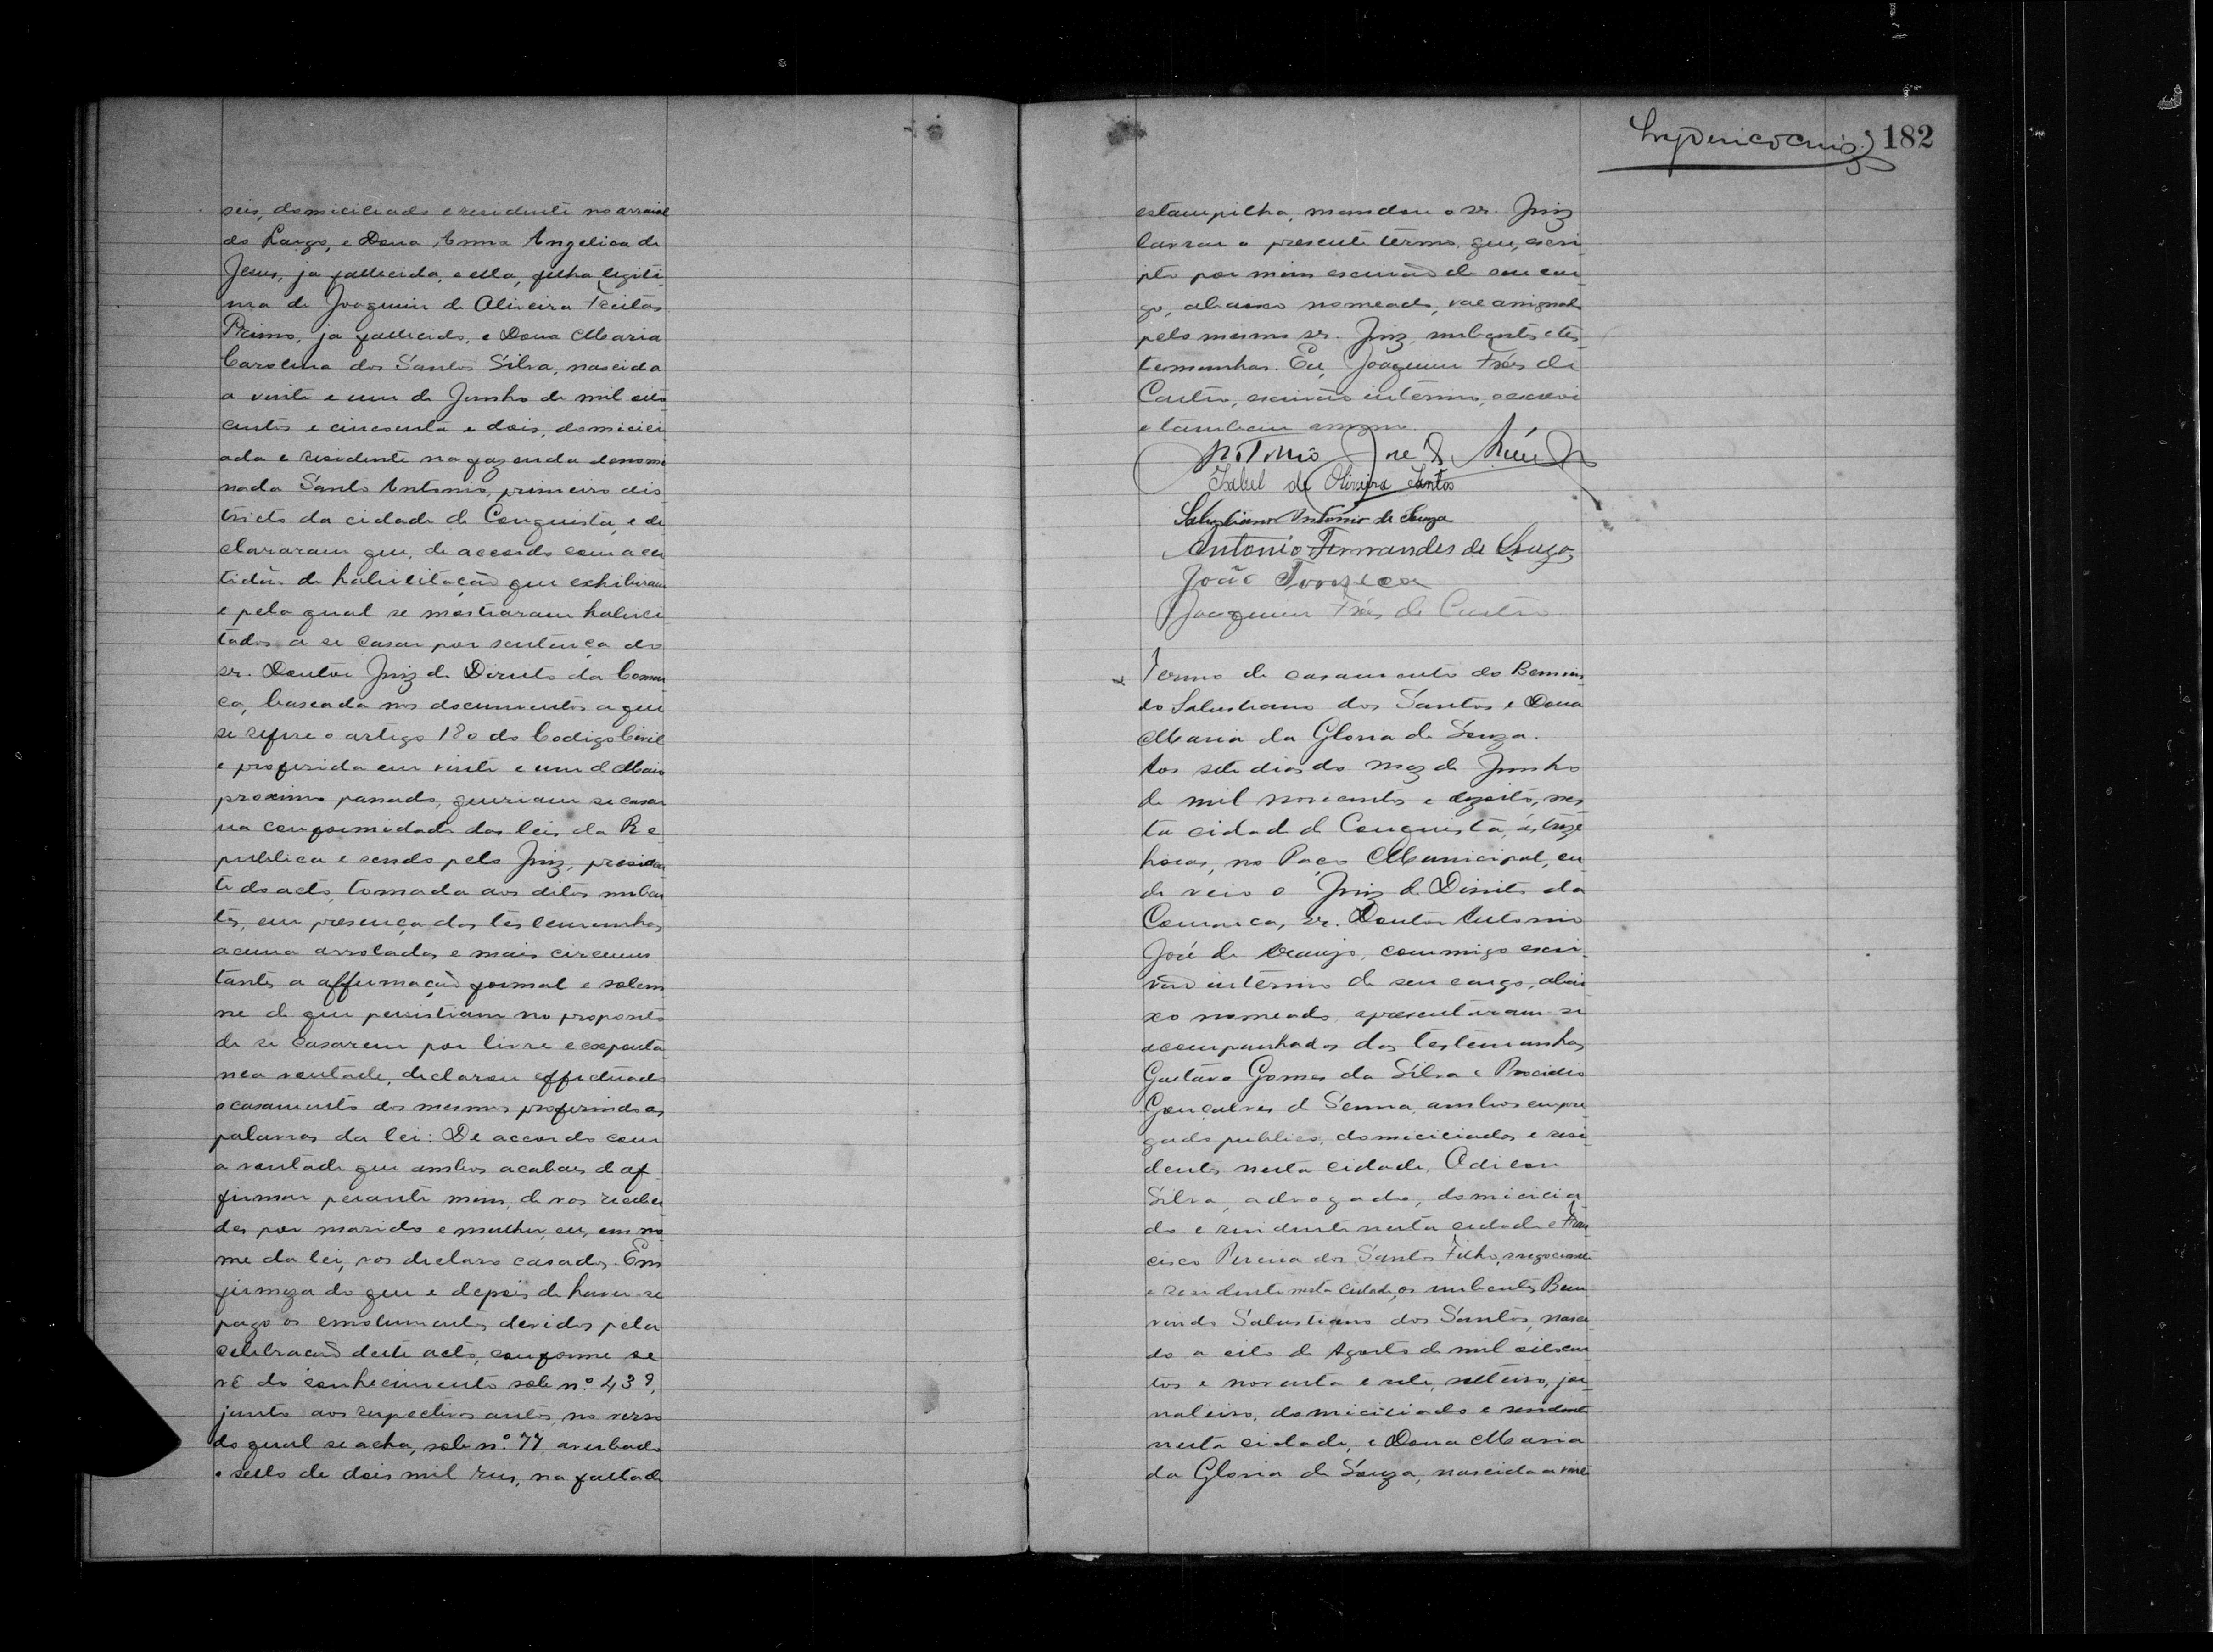 seis, domiciliado e residente no arraial
do Largo, e Dona Anna Angelica de
Jesus, ja fallecida, e ella, filha legiti
ma de Joaquim de Oliveira Freitas
Primo, ja fallecido, e Dona Maria
Carolina dos Santos Silva, nascida
a vinte e um de Junho de mil oito
centos e cincoenta e dois, domicili
ada e residente na fazenda denomi
nada Santo Antonio, primeiro dis
tricto da cidade de Conquista, e de
clararam que, de accordo com a cer
tidão de habilitação que exhibiram
e pela qual se mostraram habili
tados a se casar por sentença do
sr. Doutor Juiz de Direito da Comar
ca, baseada nos documentos a que
se refere o artigo 180 do Codigo Civil
e proferida em vinte e um de Maio
proximo passado, queriam se casar
na conformidade das leis da Re
publica e sendo pelo Juiz, presiden
te do acto, tomada aos ditos nuben
tes, em presença das testemunhas
acima arroladas e mais circums
tantes a affirmação formal e solem
ne de que persistiam no proposito
de se casarem por livre e esponta
nea vontade, declarou effectuado
o casamento dos mesmos proferindo as
palavras da lei: De accordo com
a vontade que ambos acabaes de af
firmar perante mim, de vos recebe
des por marido e mulher, eu, em no
me da lei, vos declaro casados. Em
firmeza do que e depois de haver-se
pago os emolumentos devidos pela
celebração deste acto, conforme se
vê do conhecimento sob nº 439,
junto aos respectivos autos no verso
do qual se acha, sob nº 77 averbado
o sello de dois mil reis, na falta de
182
estampilha, mandou o sr. Juiz
lavrar o presente termo, que, escri
pto por mim escrivão de seu car
go, abaixo nomeado, vae assignado
pelo mesmo sr. Juiz, nubentes e tes
temunhas. Eu, Joaquim Fróes de
Castro, escrivão interino, o escrevi
e tambem assigno.
Antonio José de
Isabel de Oliveira Santos
Salustiano Antonio de Souza
Antonio Fernandes de Souza
João Fonseca
Joaquim Fróes de Castro
Termo de casamento do Bemvin
do Salustiano dos Santos e Dona
Maria da Gloria de Souza.
Aos sete dias do mez de Junho
de mil novecentos e dezoito, nes
ta cidade de Conquista, ás treze
horas, no Paço Municipal, on
de veio o Juiz de Direito da
Comarca, sr. Doutor Antonio
José de Araujo, commigo escri
vão interino de seu cargo, abai
xo nomeado apresentaram se
acompanhados das testemunhas
Gustavo Gomes da Silva e
Gonçalves de Senna, ambos empre
gado publico, domiciliados e resi
dentes nesta cidade, Odilon
Silva, advogado, domicilia
do e residente nesta cidade e Fran
cisco Pereira dos Santos Filho, negociante
e residente nesta cidade, os nubentes Bem
vindo Salustiano dos Santos, nasci
do a oito de Agosto de mil oitocen
tos e noventa e sete, solteiro, jor
naleiro, domiciliado e residente
nesta cidade, e Dona Maria
da Gloria de Souza, nascida a vinte